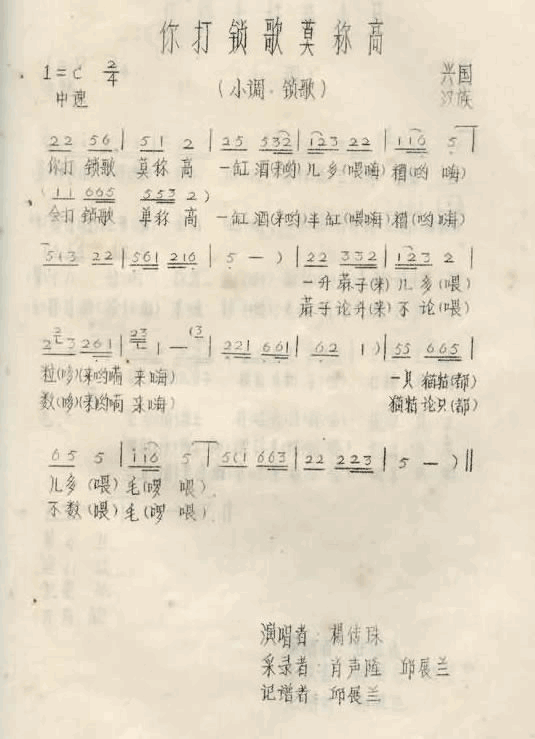 你打锁歌莫称高
1=C 2/4 兴国
中速 (小调·锁歌) 汉族
22 56 | 51 2 | 25 532 | 123 22 | 116 5
你打 锁歌 莫称 高 一缸 酒(来哟) 几 乡(喂嗨) 糟(哟 嗨)
(11 665 553 2)
会打 锁歌 单称 高 一缸 酒(来哟) 半缸(喂嗨) 糟(哟 嗨)
5(3 22 | 561 216 | 5 — ) | 22 332 | 123 2 |
一升 蔴子(来) 几 多(喂)
蔴子 论升(来) 不 论(喂)
223 261 | 23 1 — (3 | 221 661 | 62 1 ) | 55 665 |
粒(哆)(来哟喃 来 嗨) 一只 猫猫(都)
数(哆)(来哟喃 来 嗨) 猫猫 论只(都)
65 5 | 116 5 | 5(1 663 | 22 223 | 5 — ) ‖
几多 (喂) 毛(啰 喂)
不数 (喂) 毛(啰 喂)
演唱者:楊传珠
采录者:肖声隆 邱展兰
记谱者:邱展兰